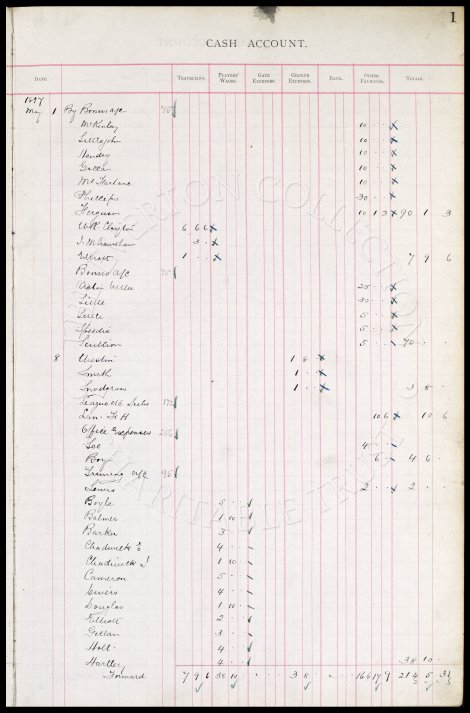 1
CASH ACCOUNT.
DATE. TRAVELLING. PLAYERS' WAGES. GATE EXPENSES. GROUND EXPENSES. BANK. OTHER PAYMENTS. TOTALS.
1897
May 1 By Bonus a/c
McKinlay 10
Littlejohn 10
Hendry 10
10
McFarlane 10
Phillips 30
Ferguson 10 13 90 1 3
W.R. Clayton 6 6 6
J. McCrawshaw 3
Elliott 1 7 9 6
Bonus a/c
20
30
5
Speedie 5
Scullion 5 70
8 1 8
Smith 1
Snodgrass 1 3 8
League Subs
Lan. F A 10 6 10 6
Office Expenses
Lee 4
Boy 6 4 6
Training a/c 95
Lewis 2 2
Boyle 5
Balmer 1 10
Barker 3
Chadwick E 4
Chadwick J 1 10
Cameron 5
Divers 4
Douglas 1 10
Elliott 2
Gillan 3
Holt 4
Hartley 4 38 10
Forward 7 9 6 38 10 3 8 168 17 9
EVERTON COLLECTION
CHARITABLE TRUST